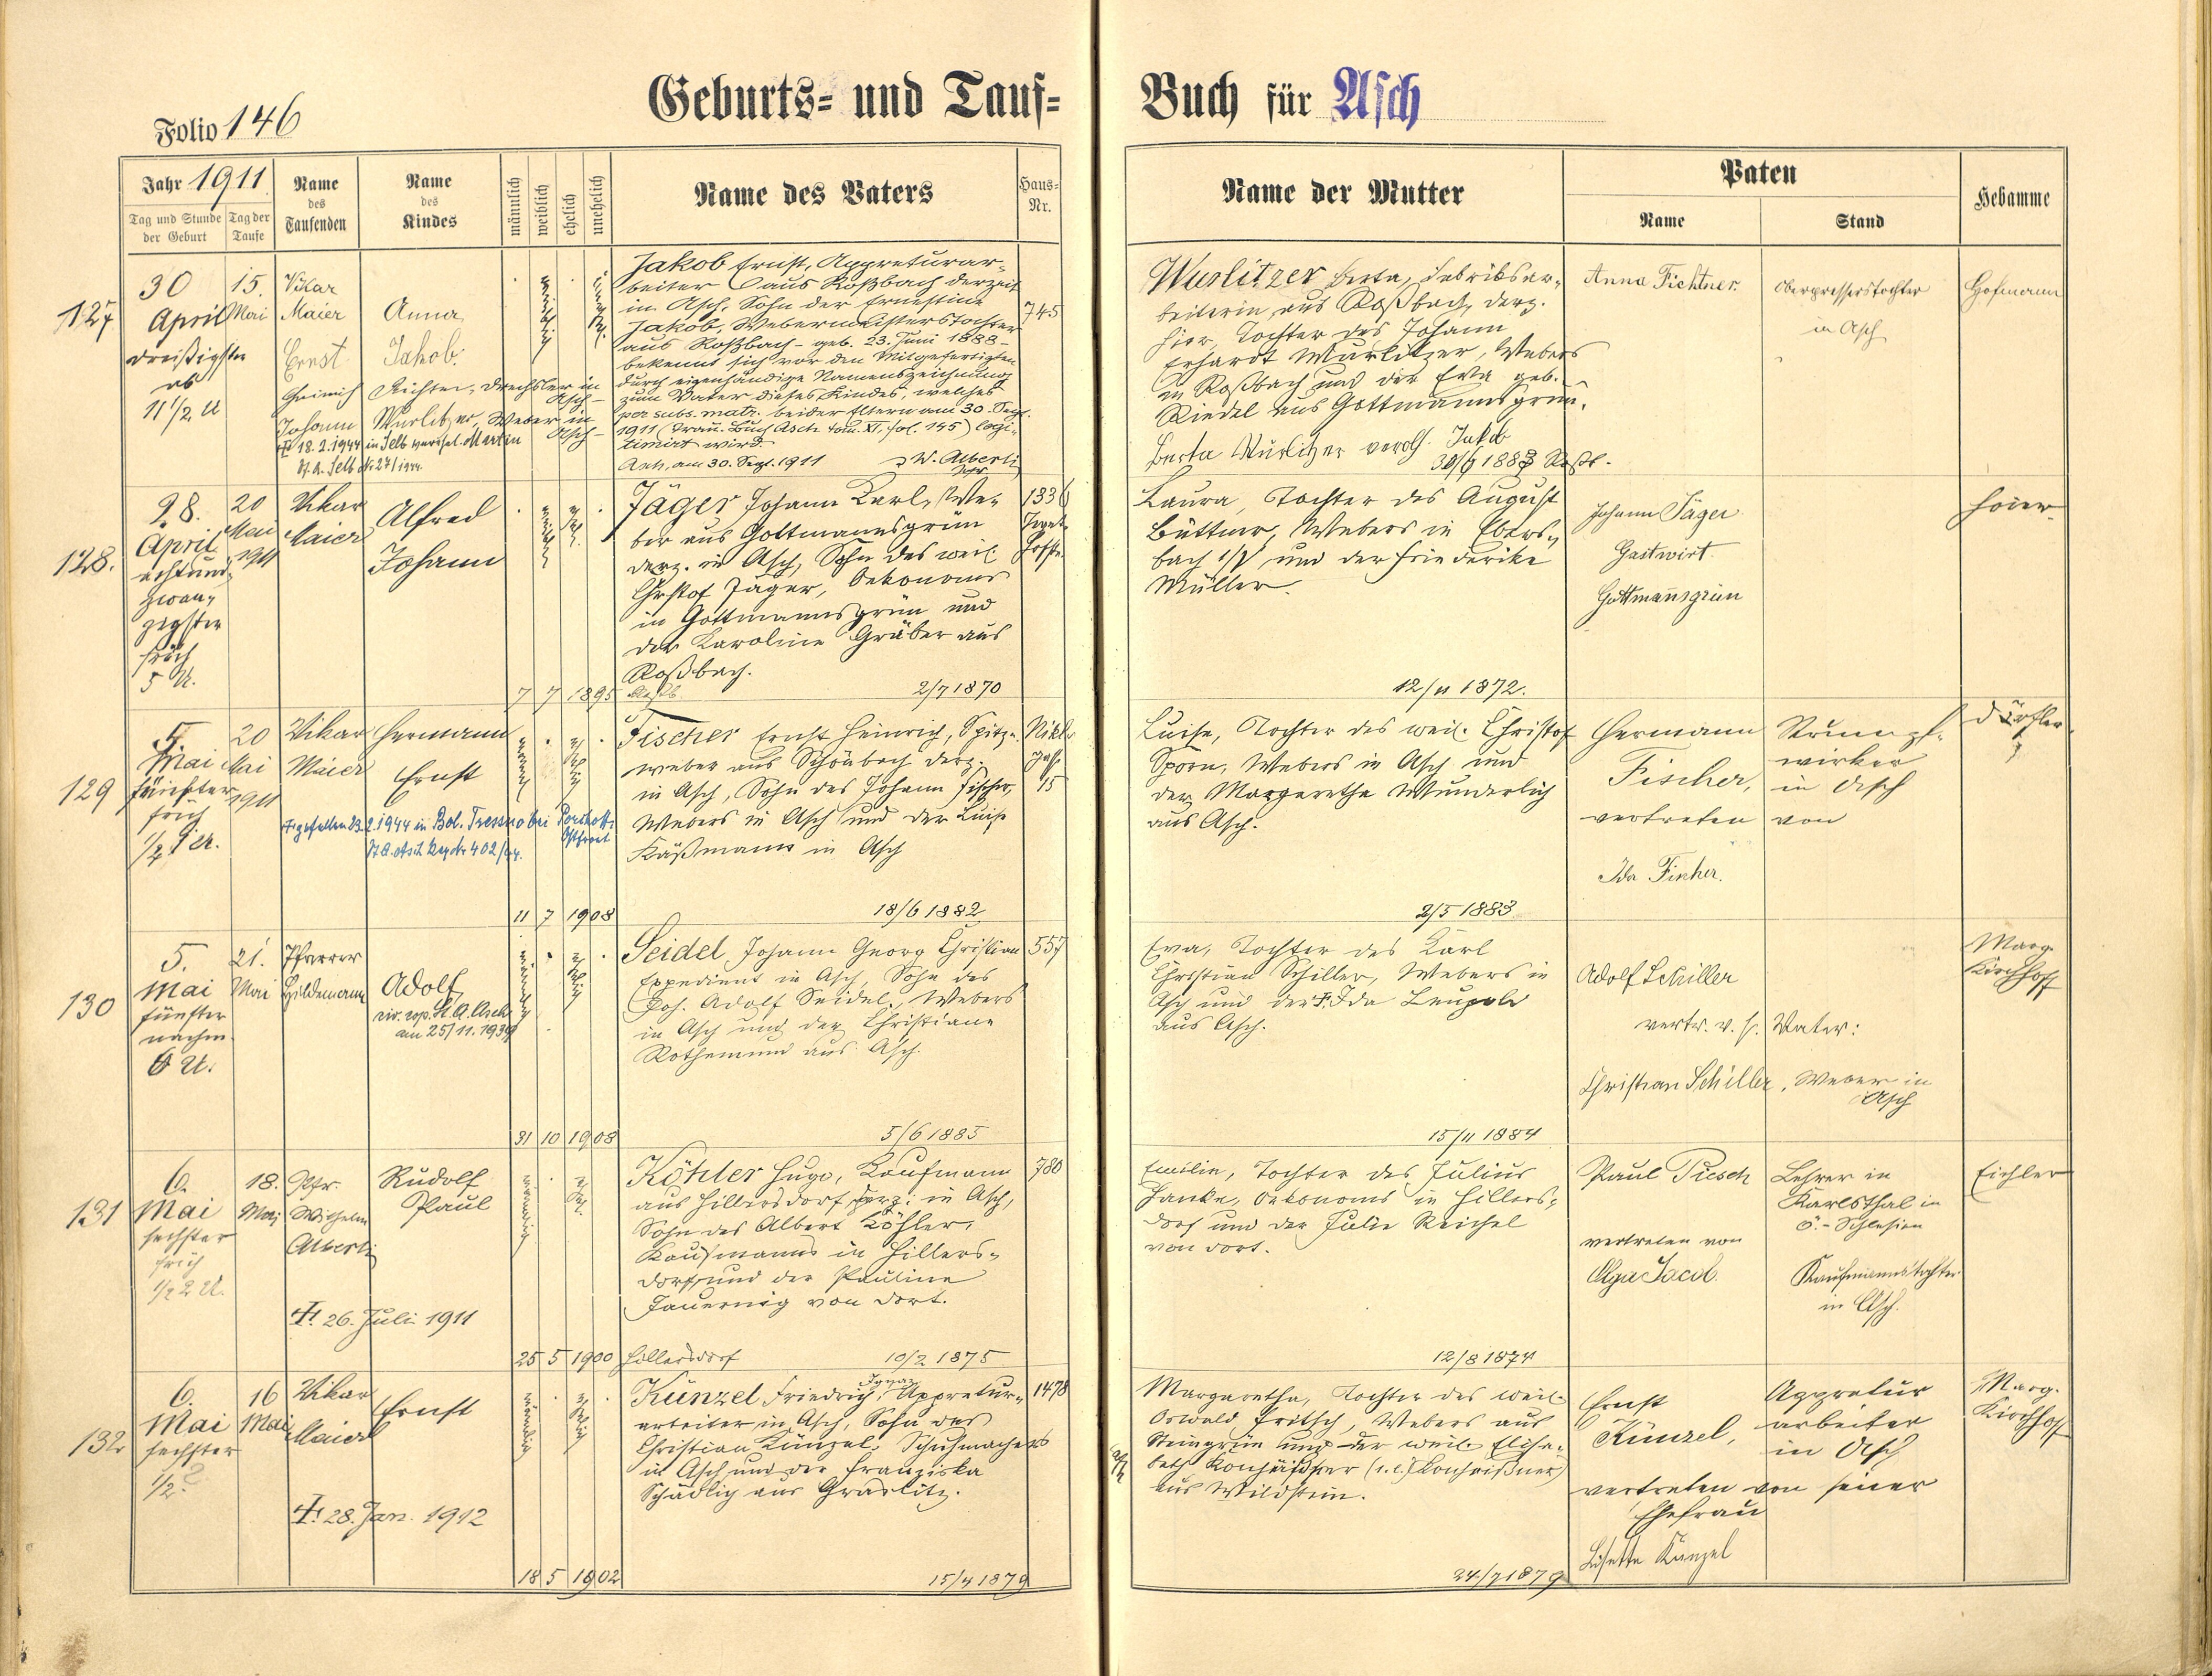 Folio 146
Geburts- und Tauf-
Buch für Asch
Jahr 1911
Tag und Stunde der Geburt
Tag der Taufe
Name des Taufenden
Name des Kindes
männlich
weiblich
ehelich
unehelich
Name des Vaters
Haus-Nr.
Name der Mutter
Paten
Name
Stand
Hebamme
127
30
April
dreißigster
11 1/2 U
15.
Mai
Vikar
Maier
Anna
Ernst Jakob.
Heinrich Richter, Drechsler in Asch
Johann Wurlitzer, Weber in Asch
18.2.1944 in Selb
St.A. Selb Nr 27/1944
Jakob Ernst, Appreturar-
beiter aus Roßbach derzeit
in Asch, Sohn der Ernestine
Jakob, Webermeisterstochter
aus Roßbach - geb. 23. Juni 1888 -
bekennt sich vor den Mitgefertigten
durch eigenhändige Namenszeichnung
zum Vater dieses Kindes, welches
per subs. matr. beider Eltern am 30. Sept.
1911 (Trau. Buch Asch tom. XI. fol. 145) legi-
timirt wird.
Asch, am 30. Sept. 1911 W. Alberti
Pfr.
745
Wurlitzer Berta, Fabriksar-
beiterin aus Roßbach, derz.
hier, Tochter des Johann
Erhardt Wurlitzer, Webers
in Roßbach und der Eva geb.
Riedel aus Gottmannsgrün.
Berta Wurlitzer verehl. Jakob
Anna Fichtner
Oberpresserstochter
in Asch
Hofmann
128.
28.
April
achtund-
zwan-
zigster
früh
5 U.
20
Mai
1911
Vikar
Maier
Alfred
Johann
Jäger Johann Karl, We-
ber aus Gottmannsgrün
derz. in Asch, Sohn des weil.
Christof Jäger, Oekonoms
in Gottmannsgrün und
der Karoline Gräber aus
Roßbach.
7 7 1895
2/7 1870
1336
Laura, Tochter des August
Büttner, Webers in Ebers-
bach und der Friederike
Müller.
12/11 1872.
Johann Jäger
Gastwirt
Gottmannsgrün
129
5.
Mai
fünfter
früh
20
Mai
1911
Vikar
Maier
Hermann
Ernst
gefallen 23.2.1944 in Bol. Tressno bei
Ostfront
St.A. Asch Reg Nr 402/44.
Fischer Ernst Heinrich, Spitzen-
weber aus Schönbach derz.
in Asch, Sohn des Johann Fischer,
Webers in Asch und der Luise
Käßmann in Asch
11 7 1908
18/6 1882
15
Luise, Tochter des weil. Christof
Sporn, Webers in Asch und
der Margaretha Wunderlich
aus Asch.
2/5 1883
Hermann
Fischer,
vertreten von
Ida Fischer.
Strumpf-
wirker
in Asch
Dörfler
130
5.
Mai
fünfter
nachm.
6 U.
21.
Mai
Pfarrer
Hildemann
Adolf
St.A. Asch
am 25/11. 1939
Seidel Johann Georg Christian
Expedient in Asch, Sohn des
Joh. Adolf Seidel, Webers
in Asch und der Christiane
Rothemund aus Asch.
31 10 1908
5/6 1885
557
Eva, Tochter des Karl
Christian Schiller, Webers in
Asch und der F. Ida Leupold
aus Asch.
15/11 1884
Adolf Schiller
vertr. v. s. Vater:
Christian Schiller, Weber in
Asch
Marg.
Kirchhoff
131
6.
Mai
sechster
früh
1/2 2 U.
18.
Mai
Pfr.
Wilhelm
Alberti
Rudolf
Paul
26. Juli 1911
Köhler Hugo, Kaufmann
aus Hillersdorf, derz. in Asch,
Sohn des Albert Köhler,
Kaufmanns in Hillers-
dorf und der Pauline
Jauernig von dort.
25 5 1900
Hillersdorf
10/2 1875
780
Emilie, Tochter des Julius
Hanke, Oekonoms in Hillers-
dorf und der Julie Reichel
von dort.
12/8 1874
Paul Piesch
vertreten von
Olga Jacob.
Lehrer in
Karlsthal in
Ö.-Schlesien
Kaufmannstochter
in Asch.
Eichler
132
6.
Mai
sechster
1/2
16
Mai
Vikar
Maier
Ernst
28. Jan. 1912
Künzel Friedrich Ignaz, Appretur-
arbeiter in Asch, Sohn des
Christian Künzel, Schuhmachers
in Asch und der Franziska
Schädlich aus Graslitz.
18 5 1902
15/4 1879
1478
Margaretha, Tochter des weil.
Oswald Fritsch, Webers aus
Steingrün und der weil. Elisa-
beth
aus Wildstein.
24/7 1879
Ernst
Künzel,
vertreten von seiner
Ehefrau
Lisette Künzel
Appretur
arbeiter
in Asch
Marg.
Kirchhoff